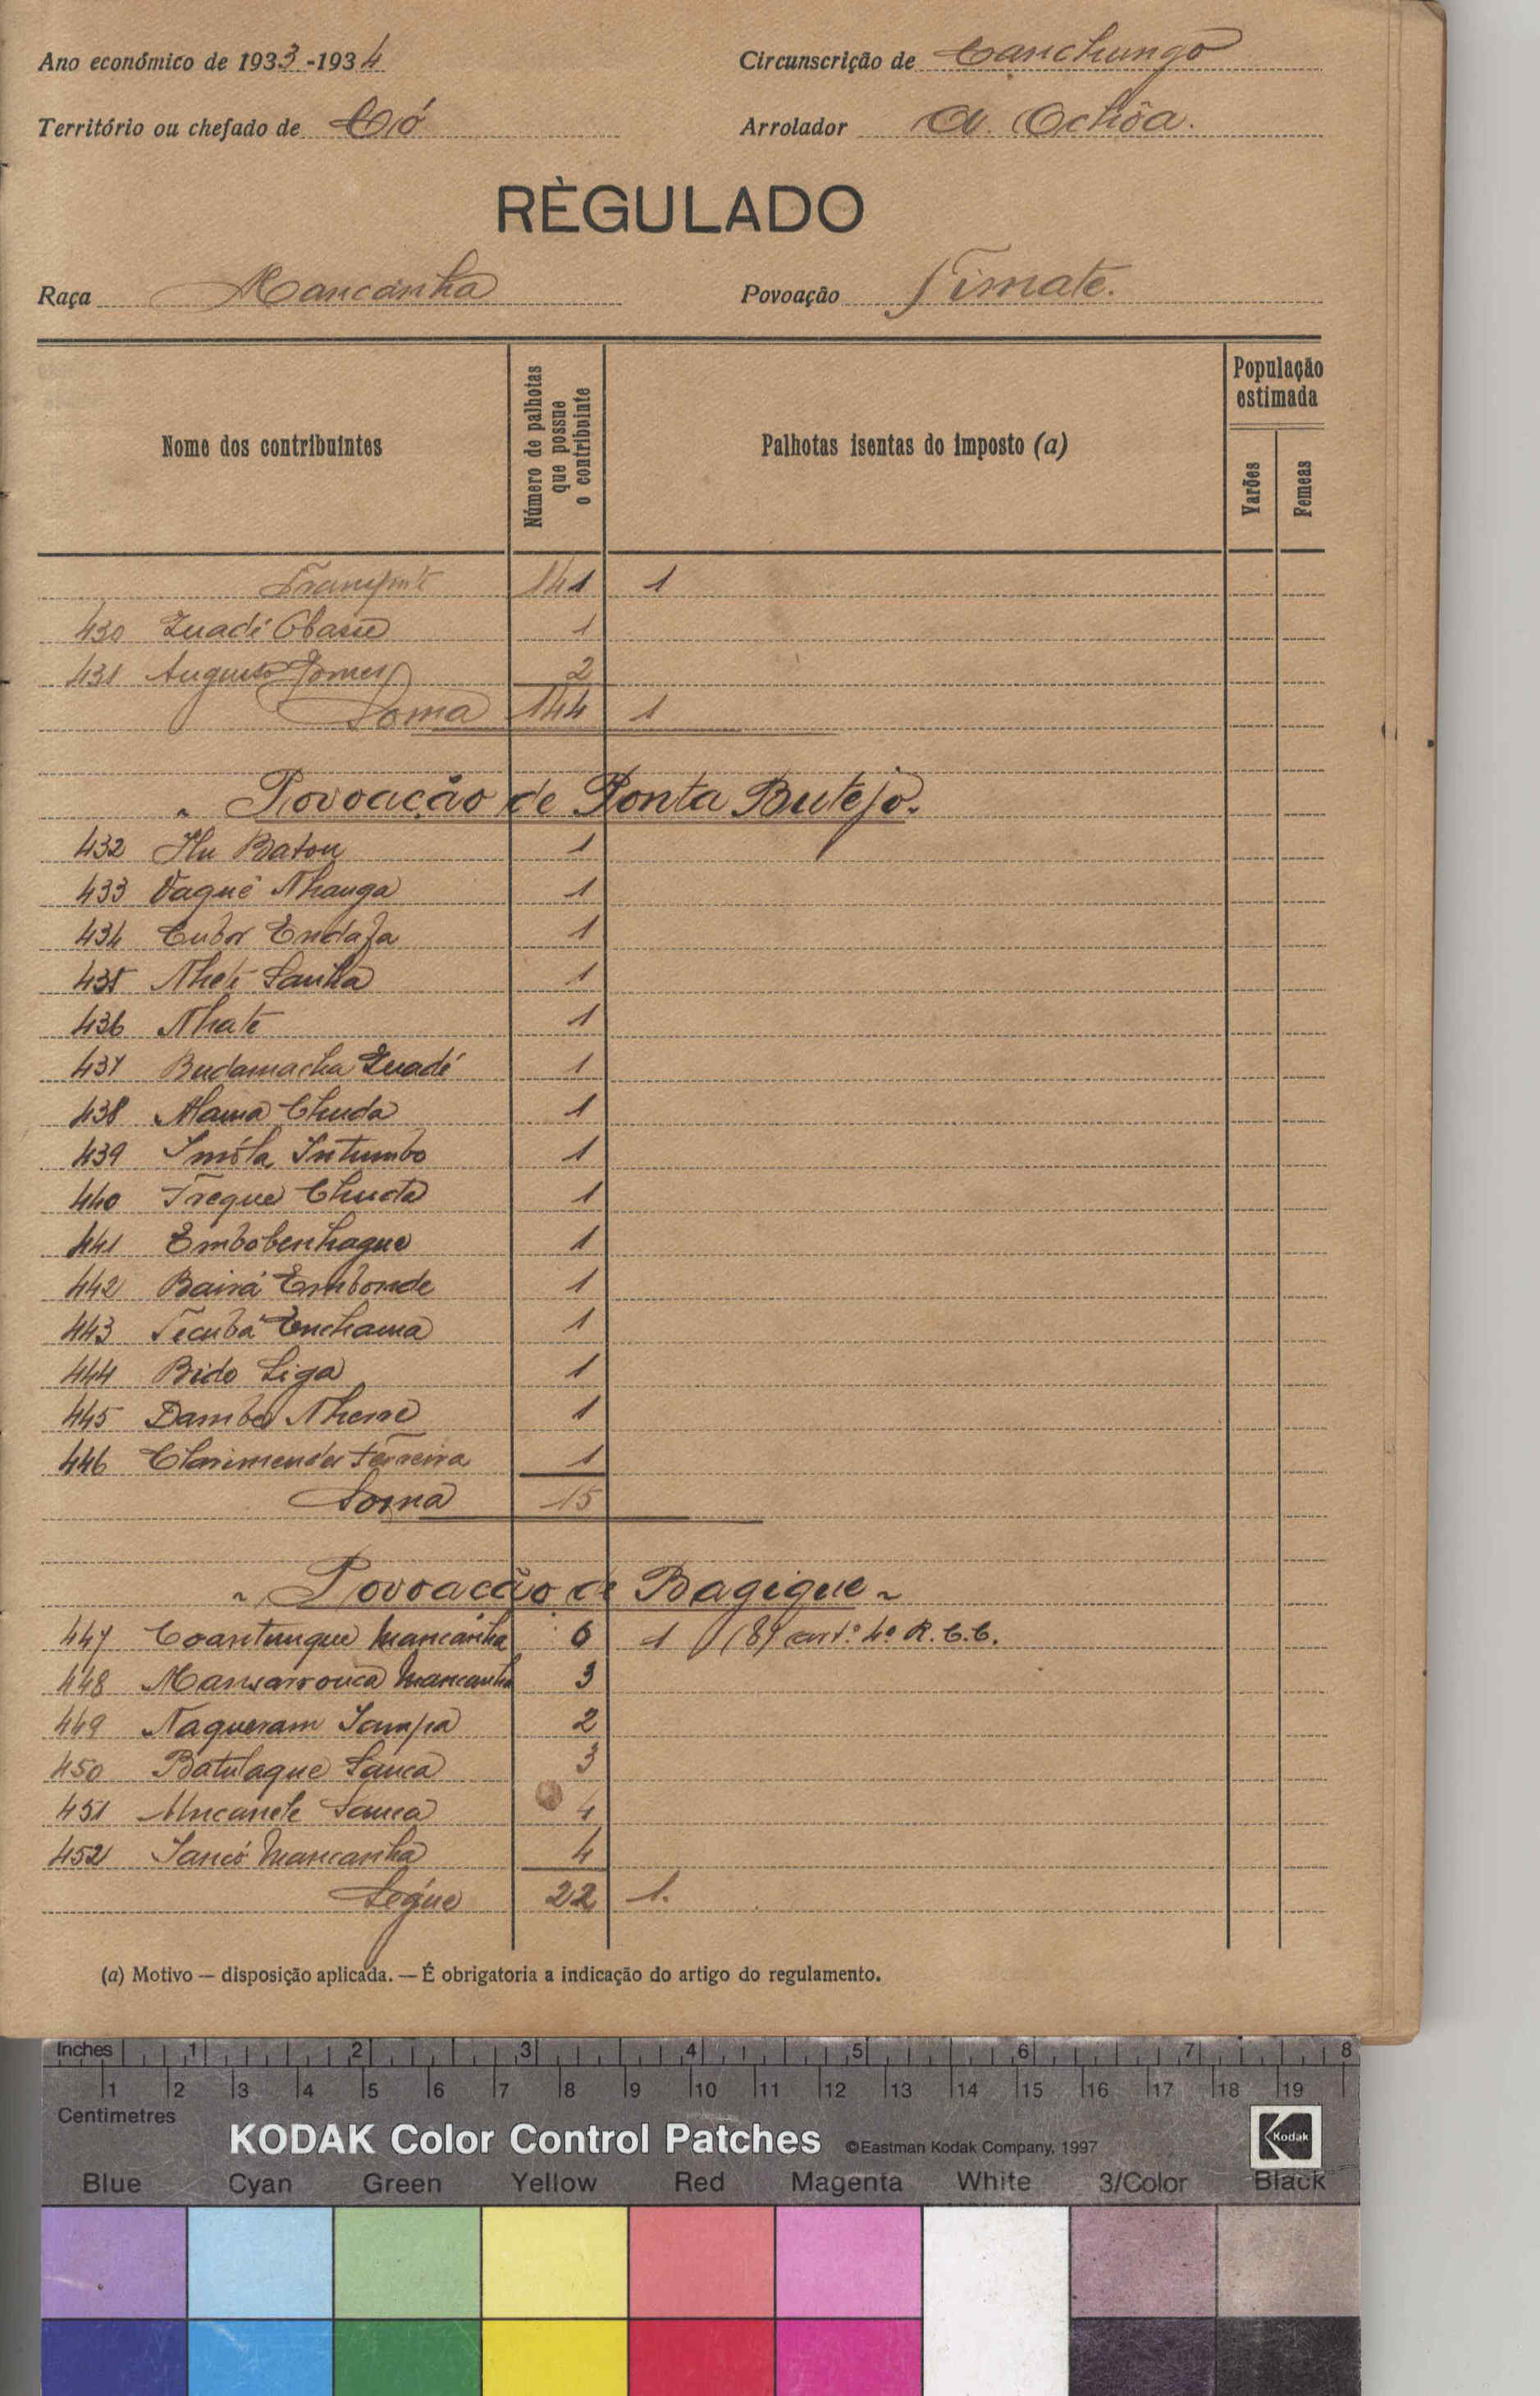 Ano económico de 1933-1934 Circunscrição de Canchungo
Território ou chefado de Có Arrolador A. Ochôa.
RÈGULADO
Raça Mancanha Povoação Timate.
Nome dos contribuintes
Número de palhotas que possue o contribuinte
Palhotas isentas do imposto (a)
População estimada
Varões
Femeas
Transporte 141 1
430 Zuadi 1
431 Augusto Gomes 2
Soma 144 1
Povoação de Ponta Butejo.
432 Batou 1
433 Vaqué Nhanga 1
434 Cubor Endafa 1
435 Sanha 1
436 Nhate 1
437 Budamacha Zuadé 1
438 Mama Chuda 1
439 Imóla Intumbo 1
440 Treque Chuda 1
441 Embobenhaque 1
442 Bairá Embonde 1
443 Tecubá Enchama 1
444 Bido Liga 1
445 Damba 1
446 Ferreira 1
Soma 15
Povoacão de Bagigue
447 Coantunque Mancanha 6 1 (8) art.º 4º R.C.C.
448 Mansarrouca Mancanha 3
449 Naqueram Sampa 2
450 Batulaque Sanca 3
451 Sanca 4
452 Sancó Mancanha 4
Segue 22 1.
(a) Motivo — disposição aplicada. — É obrigatoria a indicação do artigo do regulamento.
Inches 1 2 3 4 5 6 7 8
1 2 3 4 5 6 7 8 9 10 11 12 13 14 15 16 17 18 19
Centimetres
KODAK Color Control Patches ©Eastman Kodak Company, 1997 Kodak
Blue Cyan Green Yellow Red Magenta White 3/Color Black